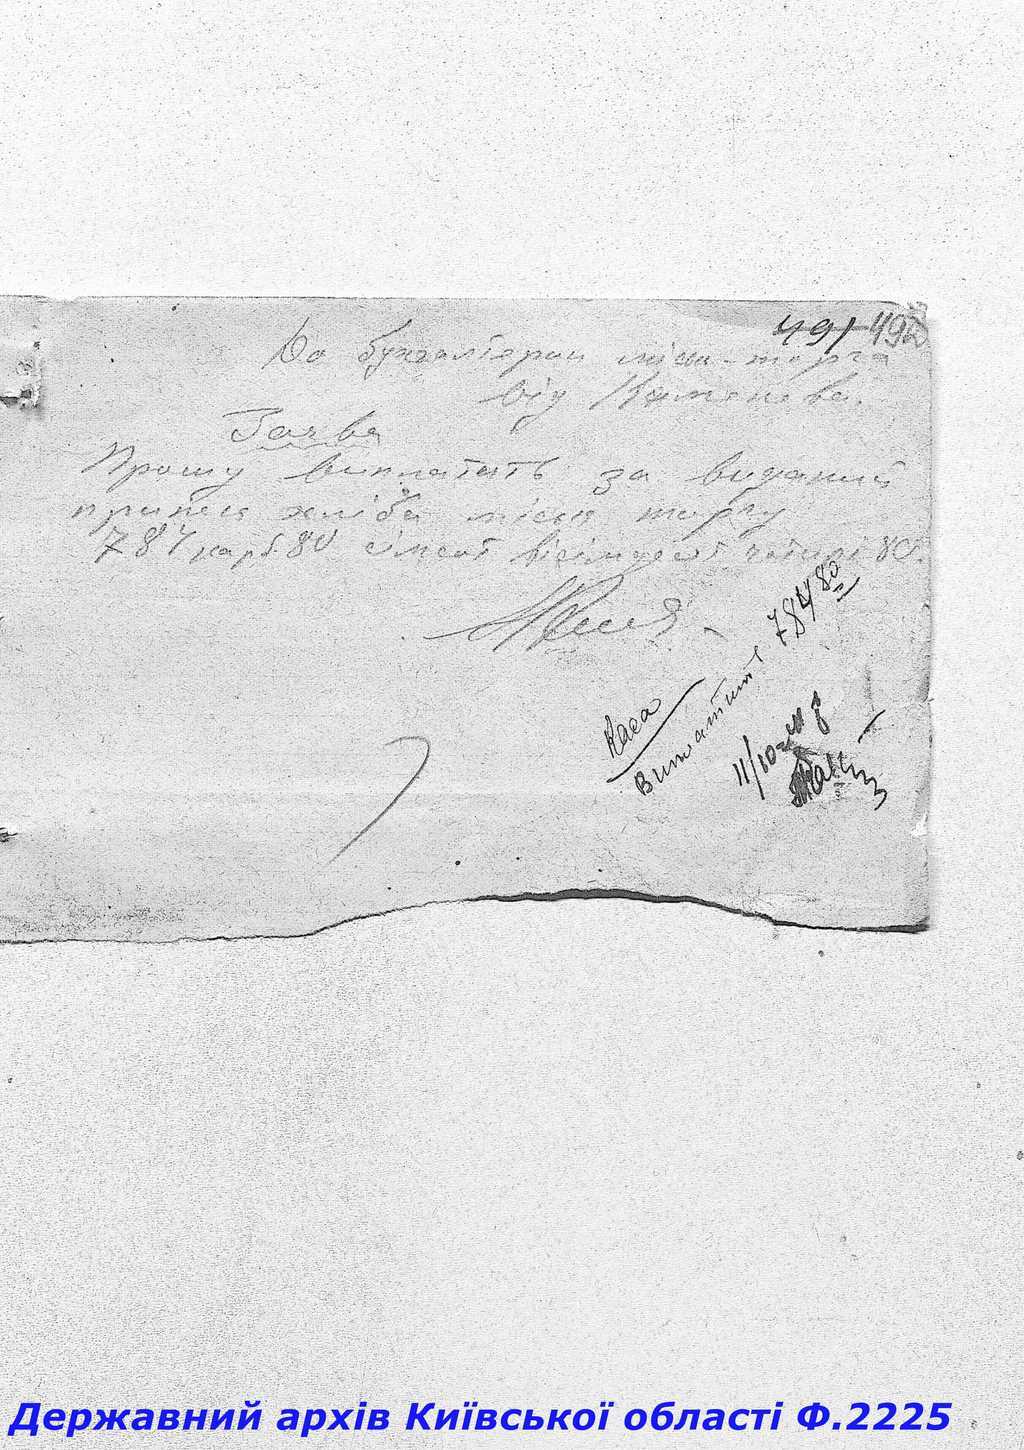 491 492
До бухгалтерии міськ-торга
від Каменева.
Заява
Прошу виплатить за виданий
припек хліба міськ торгу
784 карб 80 сімсот вісімдесят чотирі 80.
Каса
Виплатит 784 80
11/10
Державний архів Київської області Ф.2225